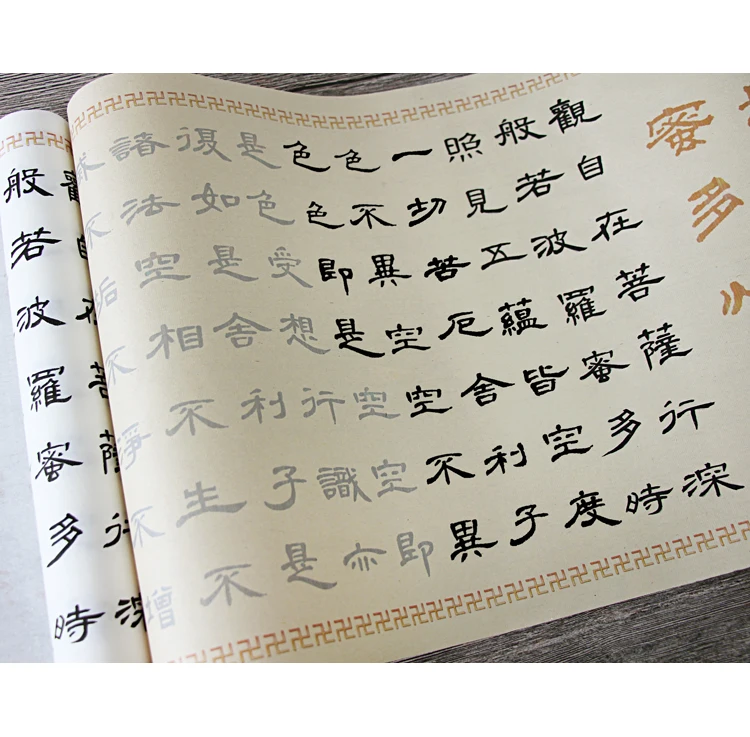 蜜多
觀自在菩薩行深
般若波羅蜜多時
照見五蘊皆空度
一切苦厄舍利子
色不異空空不異
色色即是空空即
是色受想行識亦
復如是舍利子是
諸法空相不生不
不垢不淨不增
觀自在菩薩行深
般若波羅蜜多時